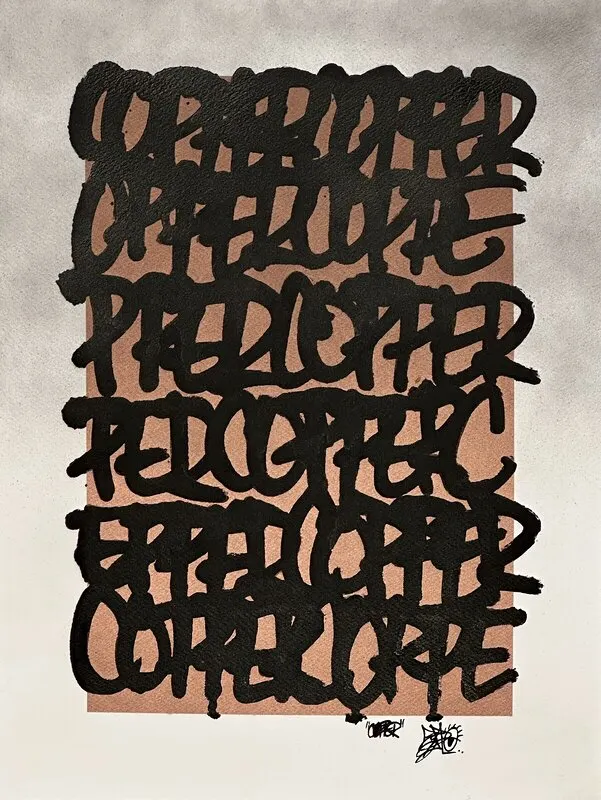 COPPERCOPPER
COPPERCOPPE
PPERCOPPER
PERCOPPERC
EPPERCOPPER
COPPERCOPPE
"COPPER"